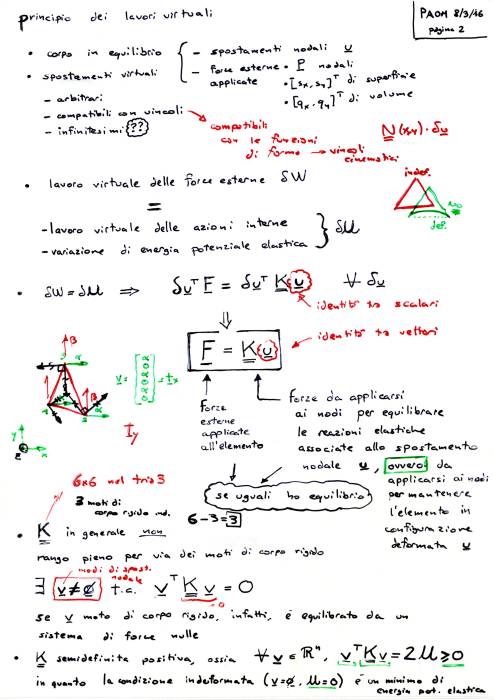 principio dei lavori virtuali
PAOM 8/3/16
pagina 2
• corpo in equilibrio
• spostamenti virtuali
- arbitrari
- compatibili con vincoli
- infinitesimi ??
- spostamenti nodali u
- forze esterne applicate
• F nodali
• [sx, sy]ᵀ di superficie
• [qx, qy]ᵀ di volume
compatibili
con le funzioni
di forma → vincoli
cinematici
N(x,y)·δu
indef.
NO
def.
• lavoro virtuale delle forze esterne δW
=
- lavoro virtuale delle azioni interne
- variazione di energia potenziale elastica } δU
• δW = δU ⇒ δuᵀ F = δuᵀ K u ∀ δu
identità tra scalari
⇓
F = K u
identità tra vettori
forze
esterne
applicate
all'elemento
forze da applicarsi
ai nodi per equilibrare
le reazioni elastiche
associate allo spostamento
nodale u, ovvero da
applicarsi ai nodi
per mantenere
l'elemento in
configurazione
deformata u
se uguali ho equilibrio
6x6 nel tria3
3 moti di
corpo rigido ind.
6-3=3
• K in generale non
rango pieno per via dei moti di corpo rigido
modi di spost.
nodale
∃ v≠0 t.c. vᵀ K v = 0
=0
se v moto di corpo rigido, infatti, è equilibrato da un
sistema di forze nulle
• K semidefinita positiva, ossia ∀ v ∈ ℝⁿ, vᵀKv = 2U ≥ 0
in quanto la condizione indeformata (v=0, U=0) è un minimo di
energia pot. elastica